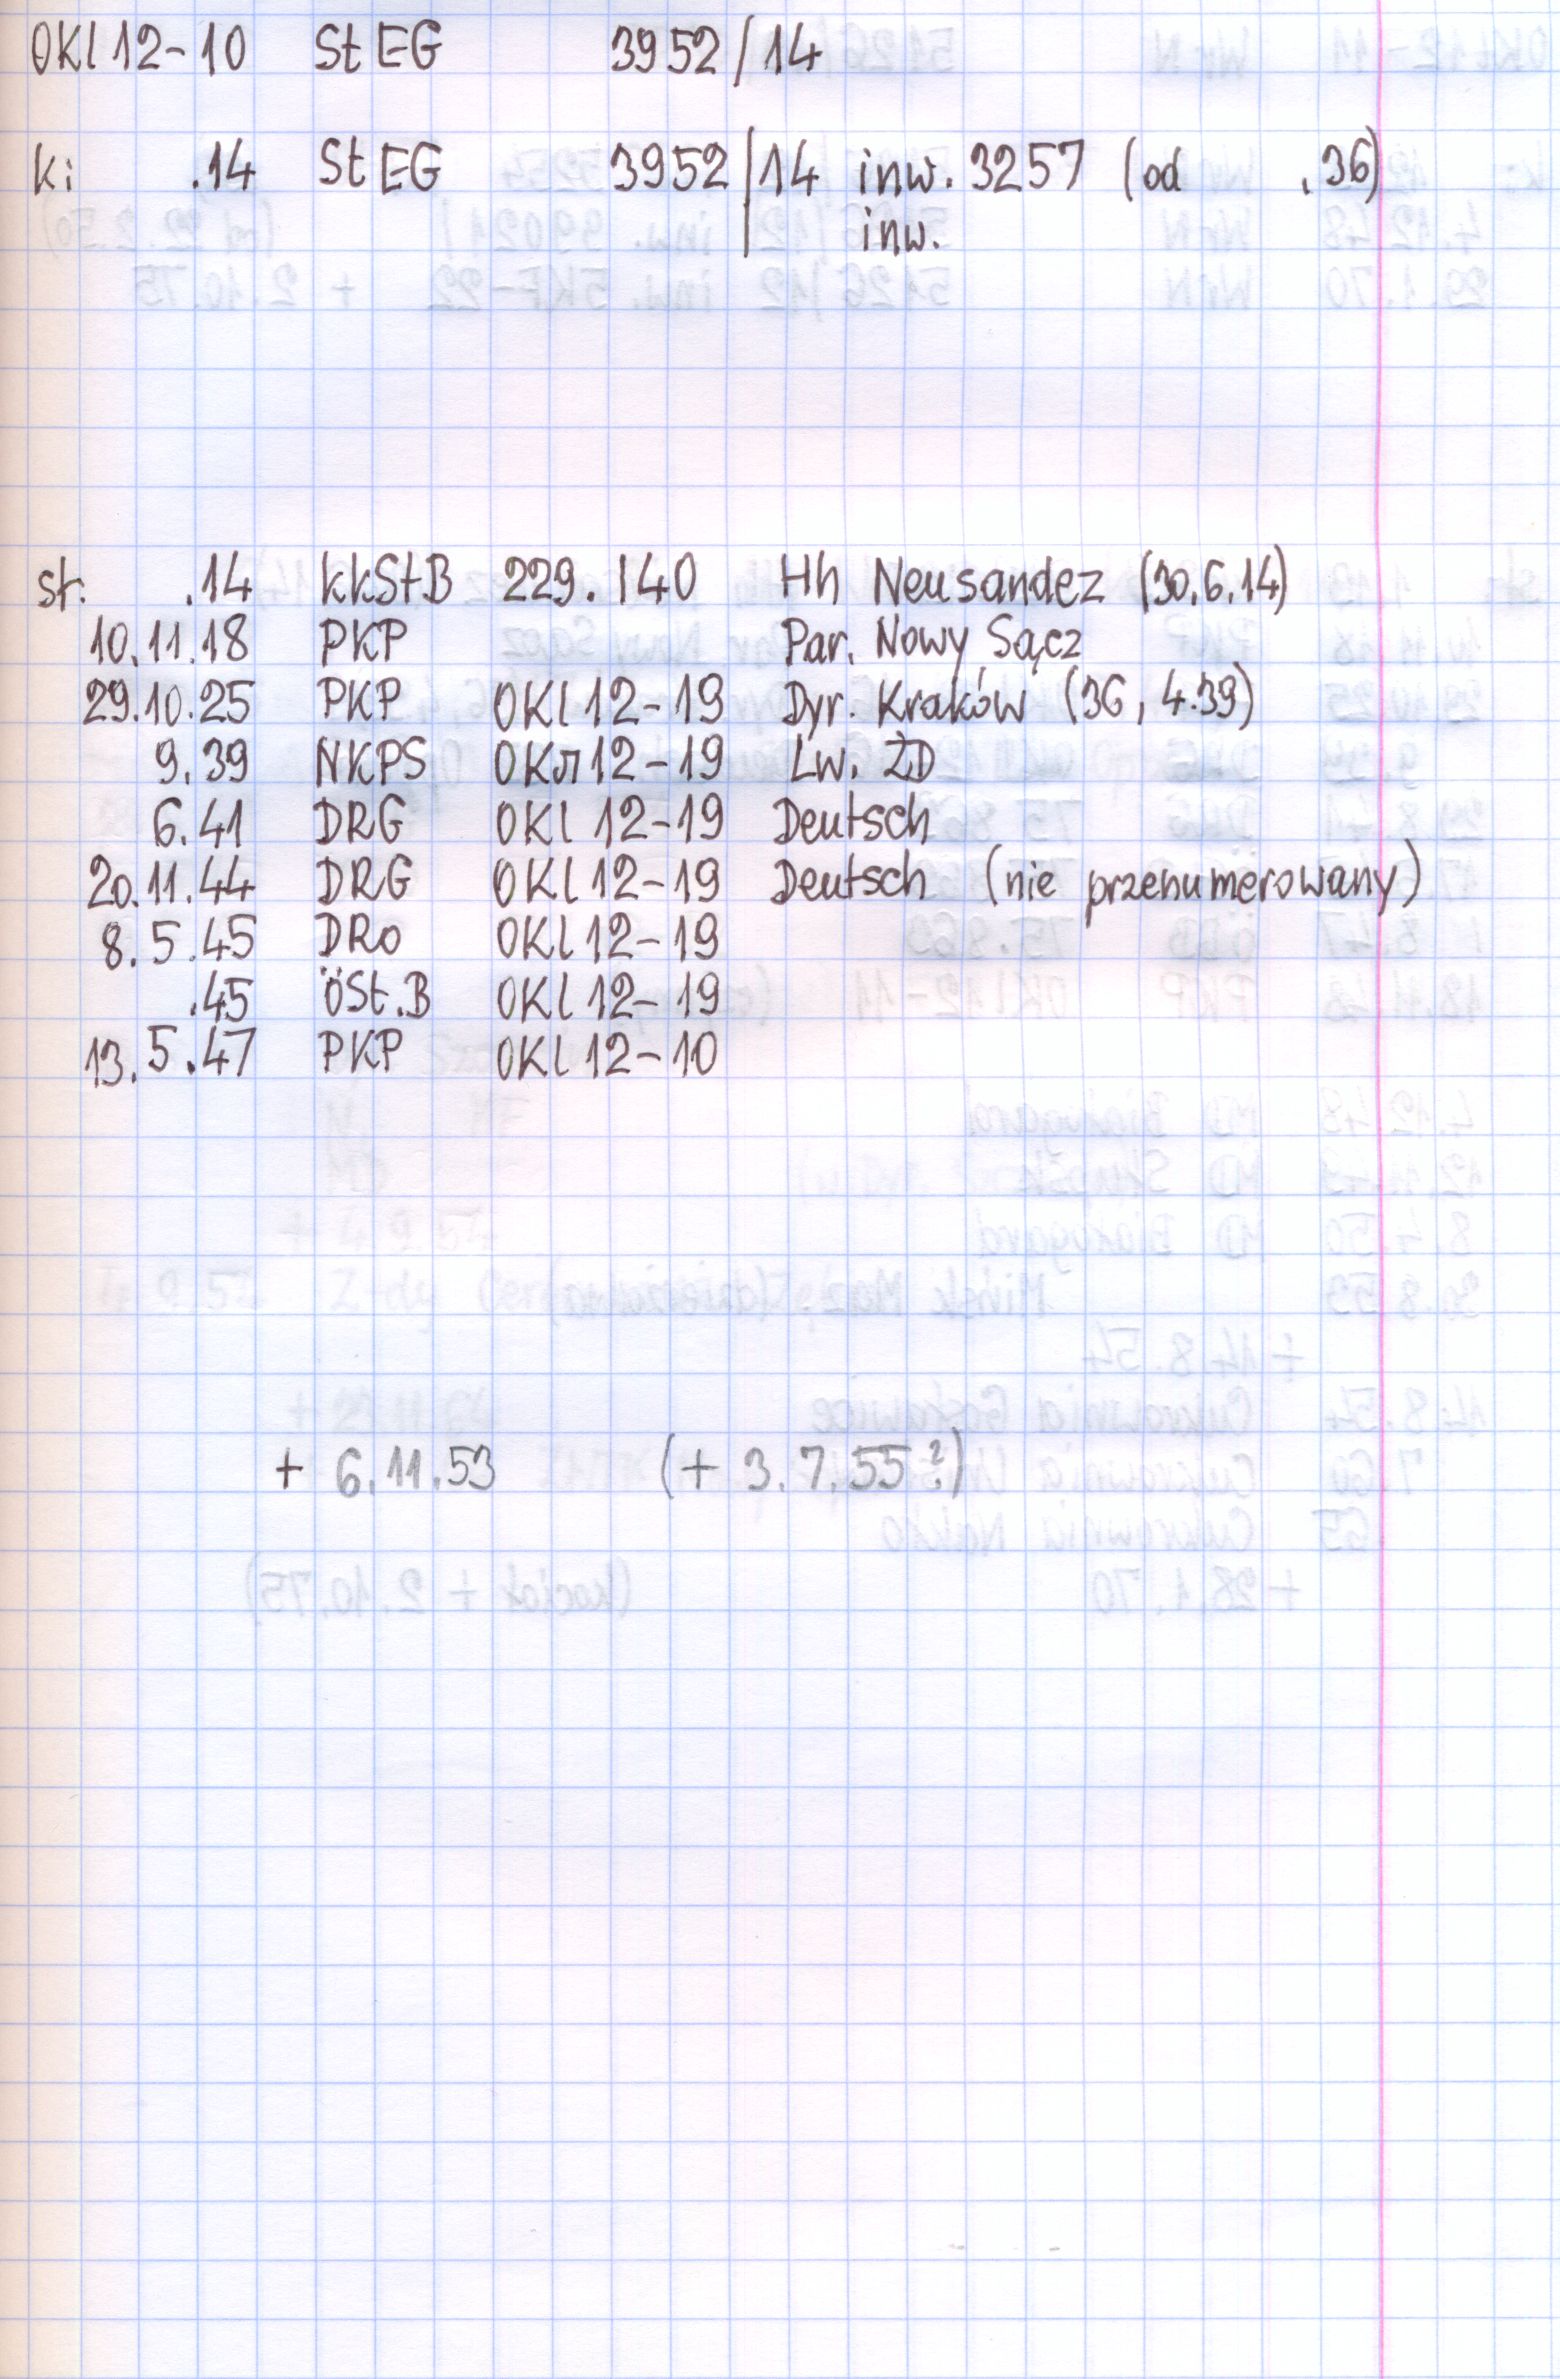 OKl 12-10 StEG 3952/14
ki .14 StEG 3952/14 inw. 3257 (od .36)
inw.
st. .14 kkStB 229.140 Hh Neusandez (30.6.14)
10.11.18 PKP Par. Nowy Sącz
29.10.25 PKP OKl 12-19 Dyr. Kraków (36, 4.39)
9.39 NKPS OKл 12-19 Lw. ŻD
6.41 DRG OKl 12-19 Deutsch
20.11.44 DRG OKl 12-19 Deutsch (nie przenumerowany)
8.5.45 DRo OKl 12-19
.45 ÖSt.B OKl 12-19
13.5.47 PKP OKl 12-10
+ 6.11.53 (+ 3.7.55?)